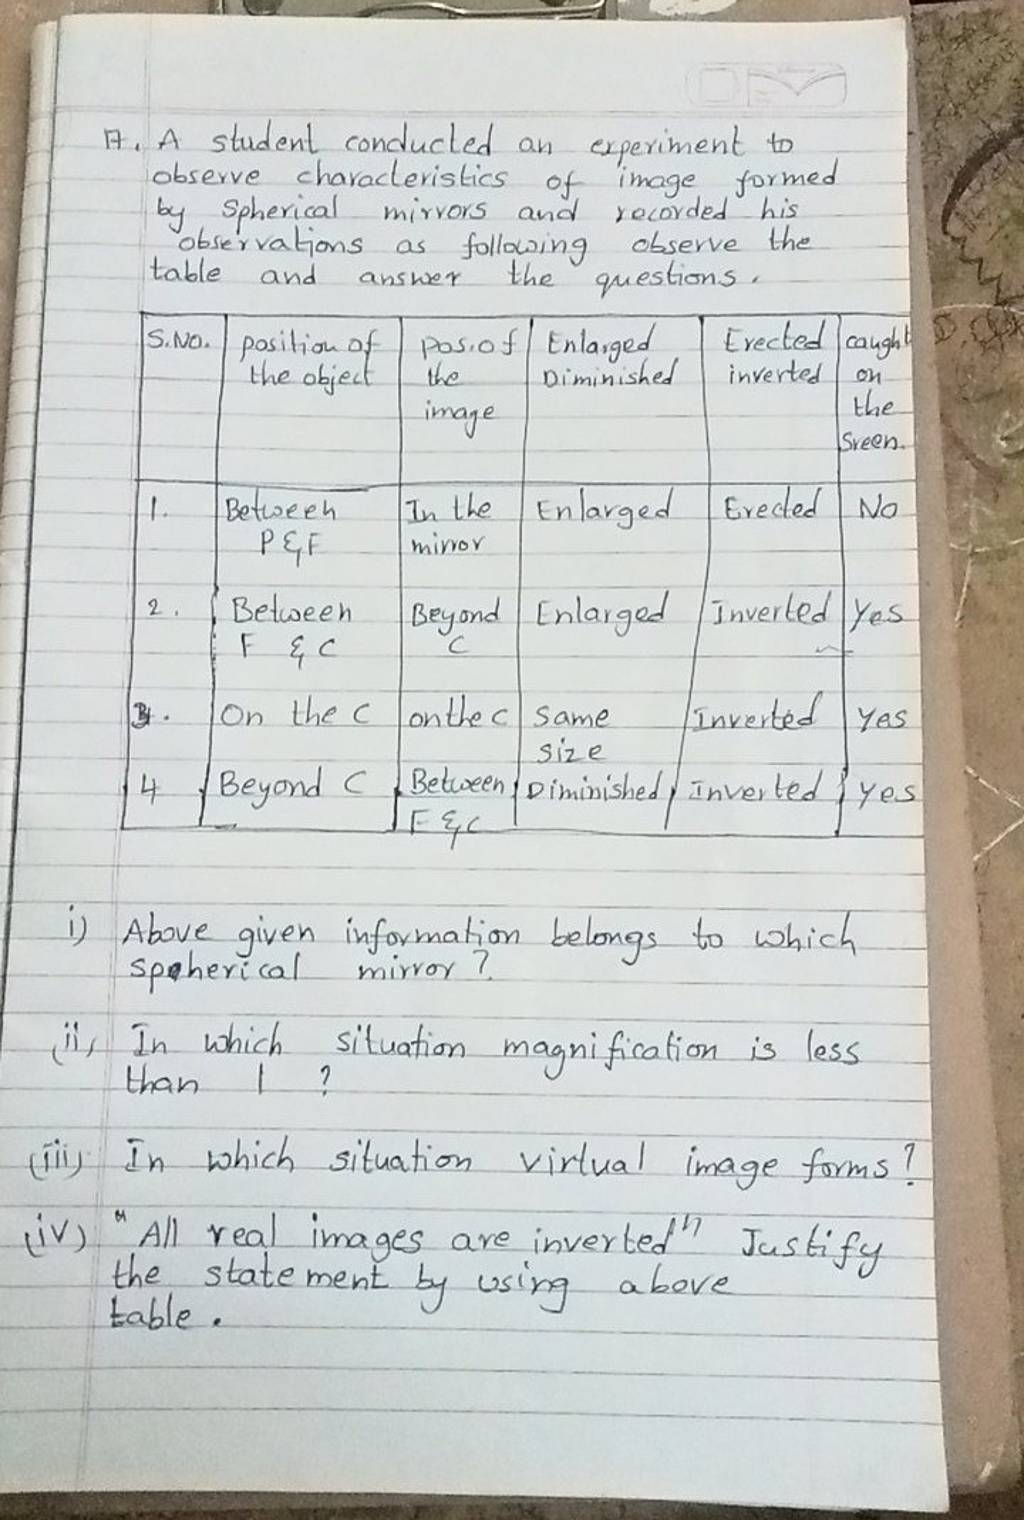 17. A student conducted an experiment to
observe characteristics of image formed
by Spherical mirrors and recorded his
observations as following observe the
table and answer the questions.
S.No. position of the object pos.of the image Enlarged Diminished Erected inverted caught on the Sreen.
1. Between P & F In the mirror Enlarged Erected No
2. Between F & C Beyond C Enlarged Inverted Yes
3. On the C on the C Same size Inverted Yes
4 Beyond C Between F & C Diminished Inverted yes
i) Above given information belongs to which
spherical mirror?
ii, In which situation magnification is less
than 1 ?
(iii) In which situation virtual image forms?
(iv) "All real images are inverted" Justify
the statement by using above
table.